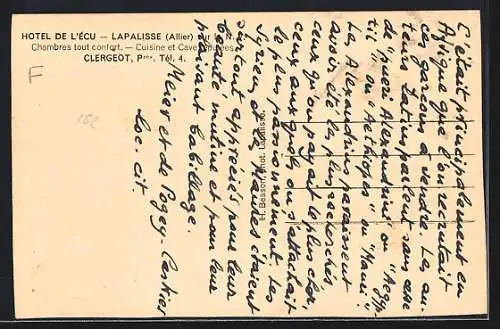 HOTEL DE L'ÉCU — LAPALISSE (Allier) sur R. N.
Chambres tout confort. — Cuisine et Cave
CLERGEOT, Pre. Tél. 4.
F
162
H. Besson, phot. Lapalisse
C'était principalement en
Afrique que l'on recrutait
ces garçons à vendre. Les au-
teurs latins parlent sans cesse
de "pueri Alexandrini" ou "Aegyp-
tii" ou "Aethiopes" ou "Mauri".
Les Alexandrins paraissent
avoir été les plus recherchés,
ceux qu'on payait le plus cher,
ceux auxquels on s'attachait
le plus passionnément. Les
Syriens et les Maures étaient
surtout appréciés pour leur
beauté mutine et pour leur
plaisant babillage.
Meier et de Pogey-Castries
loc. cit.